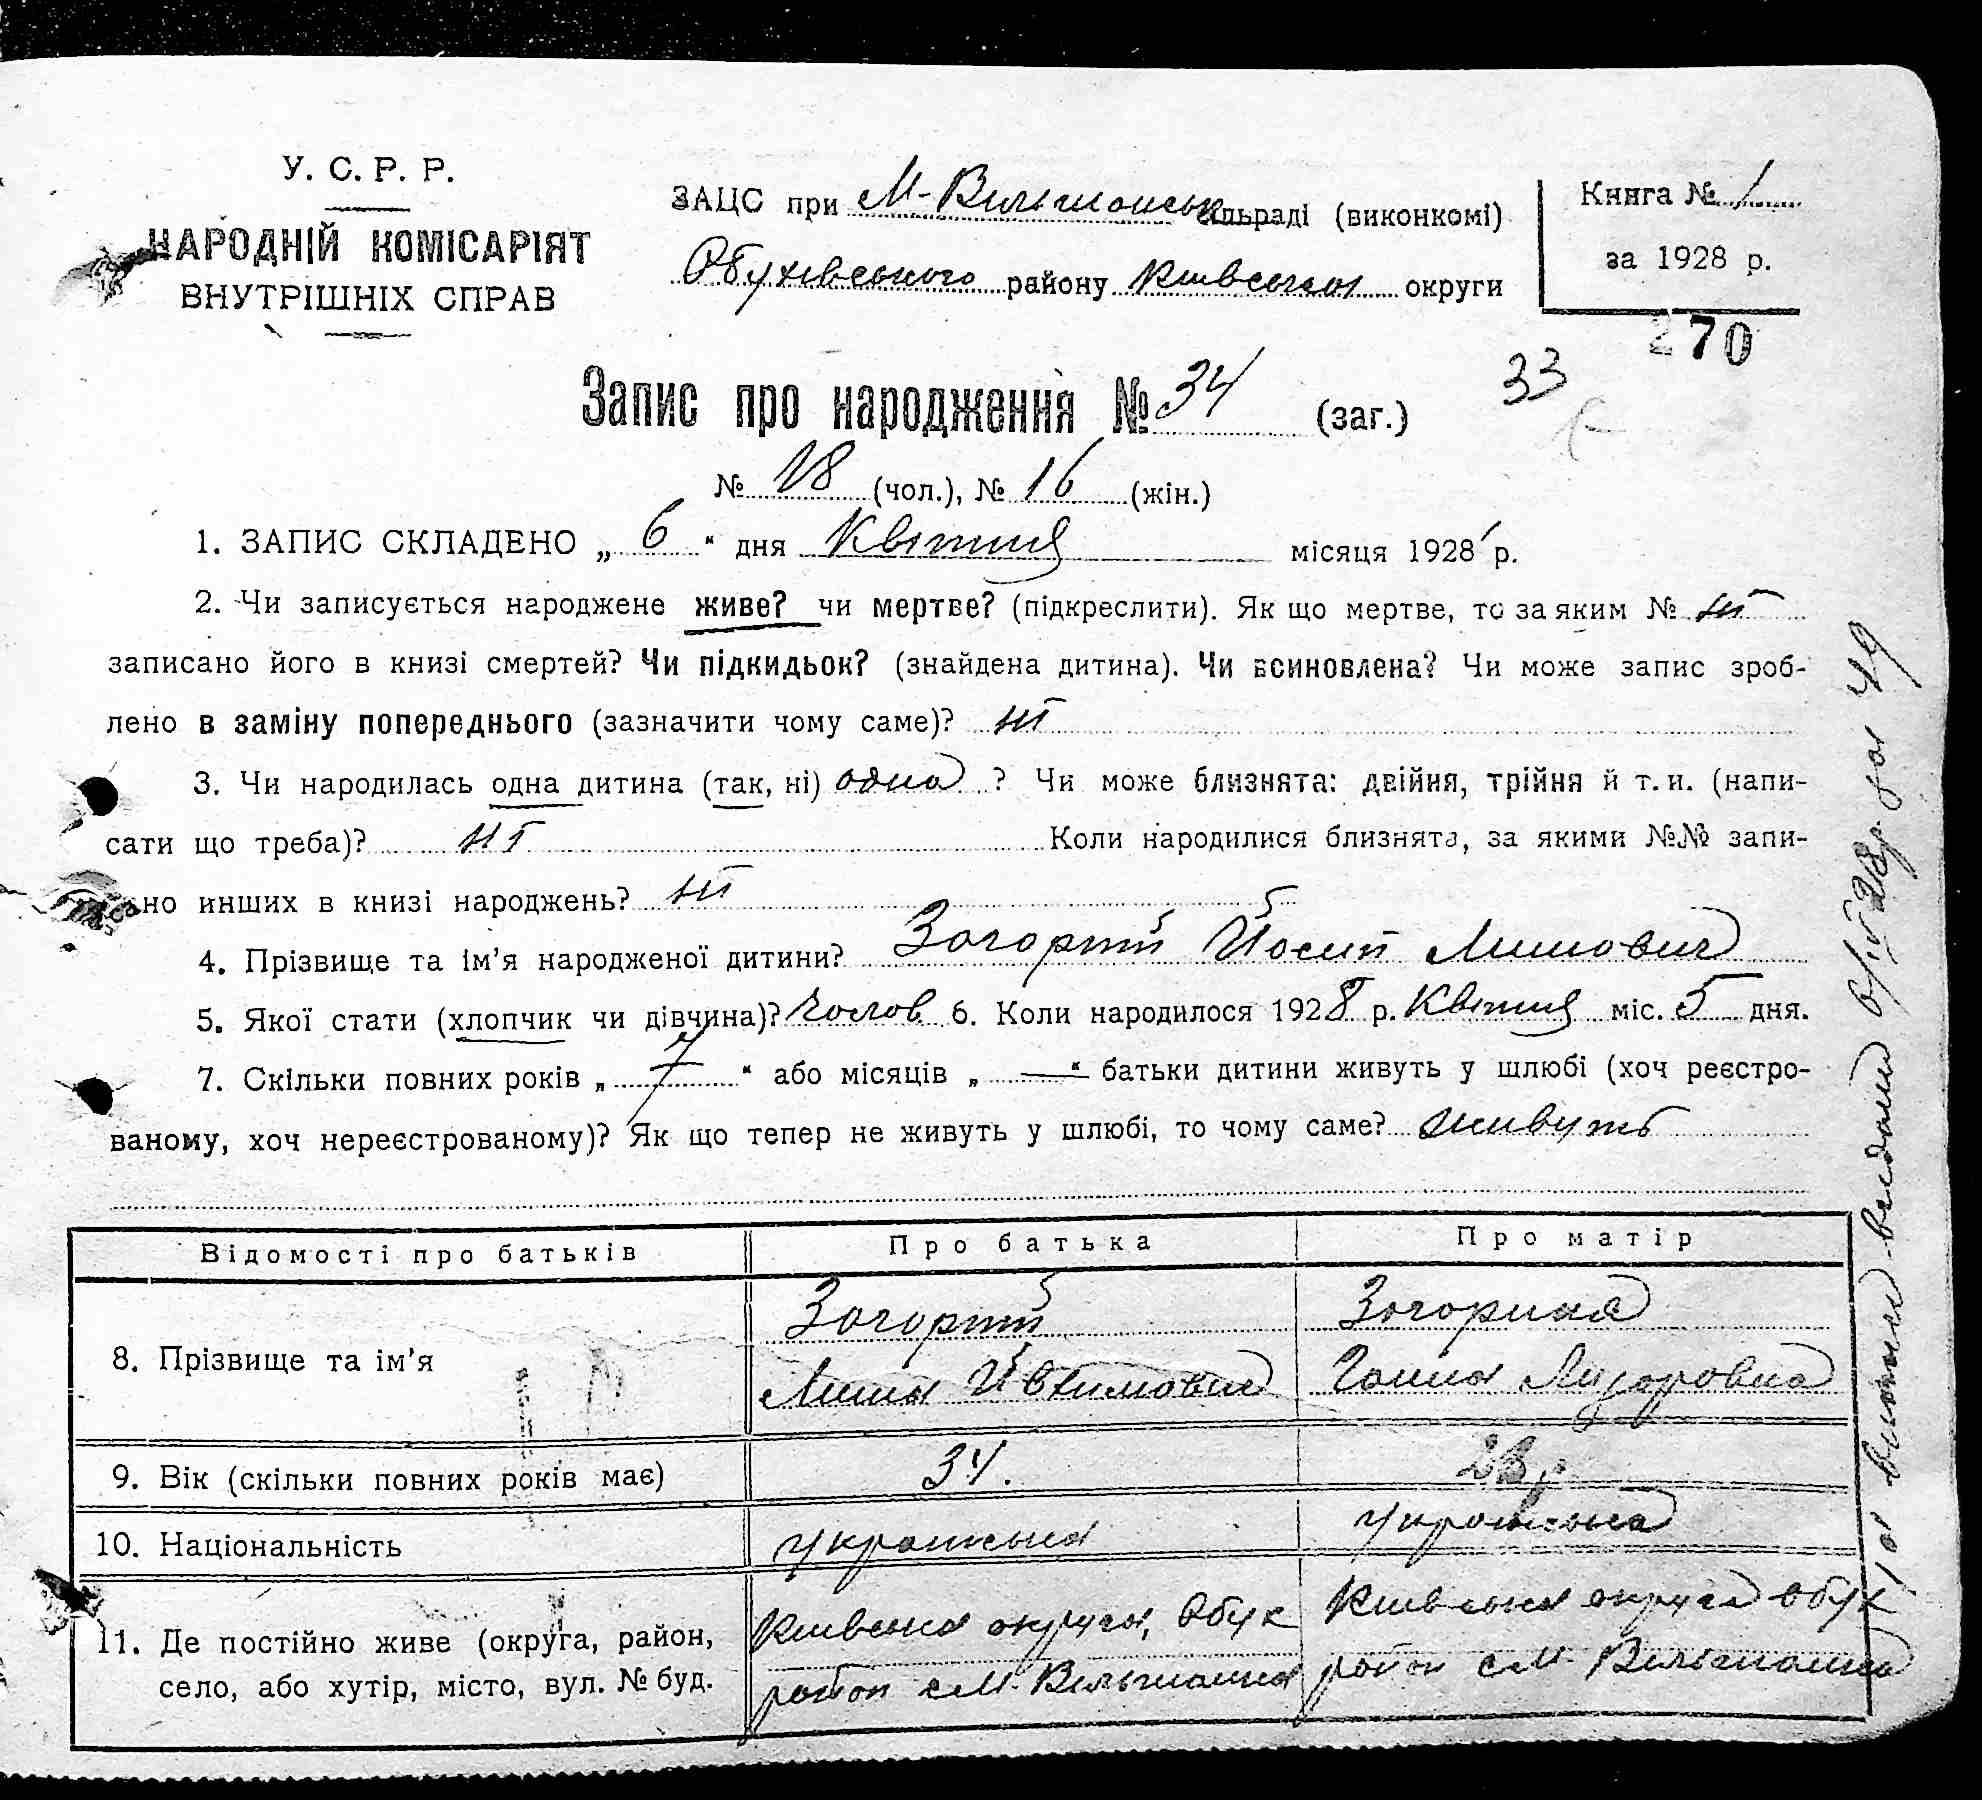 У. С. Р. Р.
НАРОДНІЙ КОМІСАРІЯТ
ВНУТРІШНІХ СПРАВ
ЗАЦС при М-Вільшанськ сільраді (виконкомі)
Обухівського району Київської округи
Книга № 1
за 1928 р.
270
33
Запис про народження № 34 (заг.)
№ 18 (чол.), № 16 (жін.)
1. ЗАПИС СКЛАДЕНО „ 6 “ дня Квітня місяця 1928 р.
2. Чи записується народжене живе? чи мертве? (підкреслити). Як що мертве, то за яким № ні
записано його в книзі смертей? Чи підкидьок? (знайдена дитина). Чи всиновлена? Чи може запис зроб-
лено в заміну попереднього (зазначити чому саме)? ні
3. Чи народилась одна дитина (так, ні) одна ? Чи може близнята: двійня, трійня й т. и. (напи-
сати що треба)? ні Коли народилися близнята, за якими №№ запи-
сано инших в книзі народжень? ні
4. Прізвище та ім’я народженої дитини? Загорній Йосип Минович
5. Якої стати (хлопчик чи дівчина)? чолов 6. Коли народилося 1928 р. Квітня міс. 5 дня.
7. Скільки повних років „ 7 “ або місяців „ — “ батьки дитини живуть у шлюбі (хоч реєстро-
ваному, хоч нереєстрованому)? Як що тепер не живуть у шлюбі, то чому саме? живуть
Відомості про батьків Про батька Про матір
8. Прізвище та ім’я
Загорній
Мина Йвхимович
Загорня
Ганна Лазаровна
9. Вік (скільки повних років має) 34. 28 р
10. Національність українська українська
11. Де постійно живе (округа, район,
село, або хутір, місто, вул. № буд.
Київська округа, Обух
район с М-Вільшанка
Київська округа Обух
район с М-Вільшанка
видана 28р. за 49